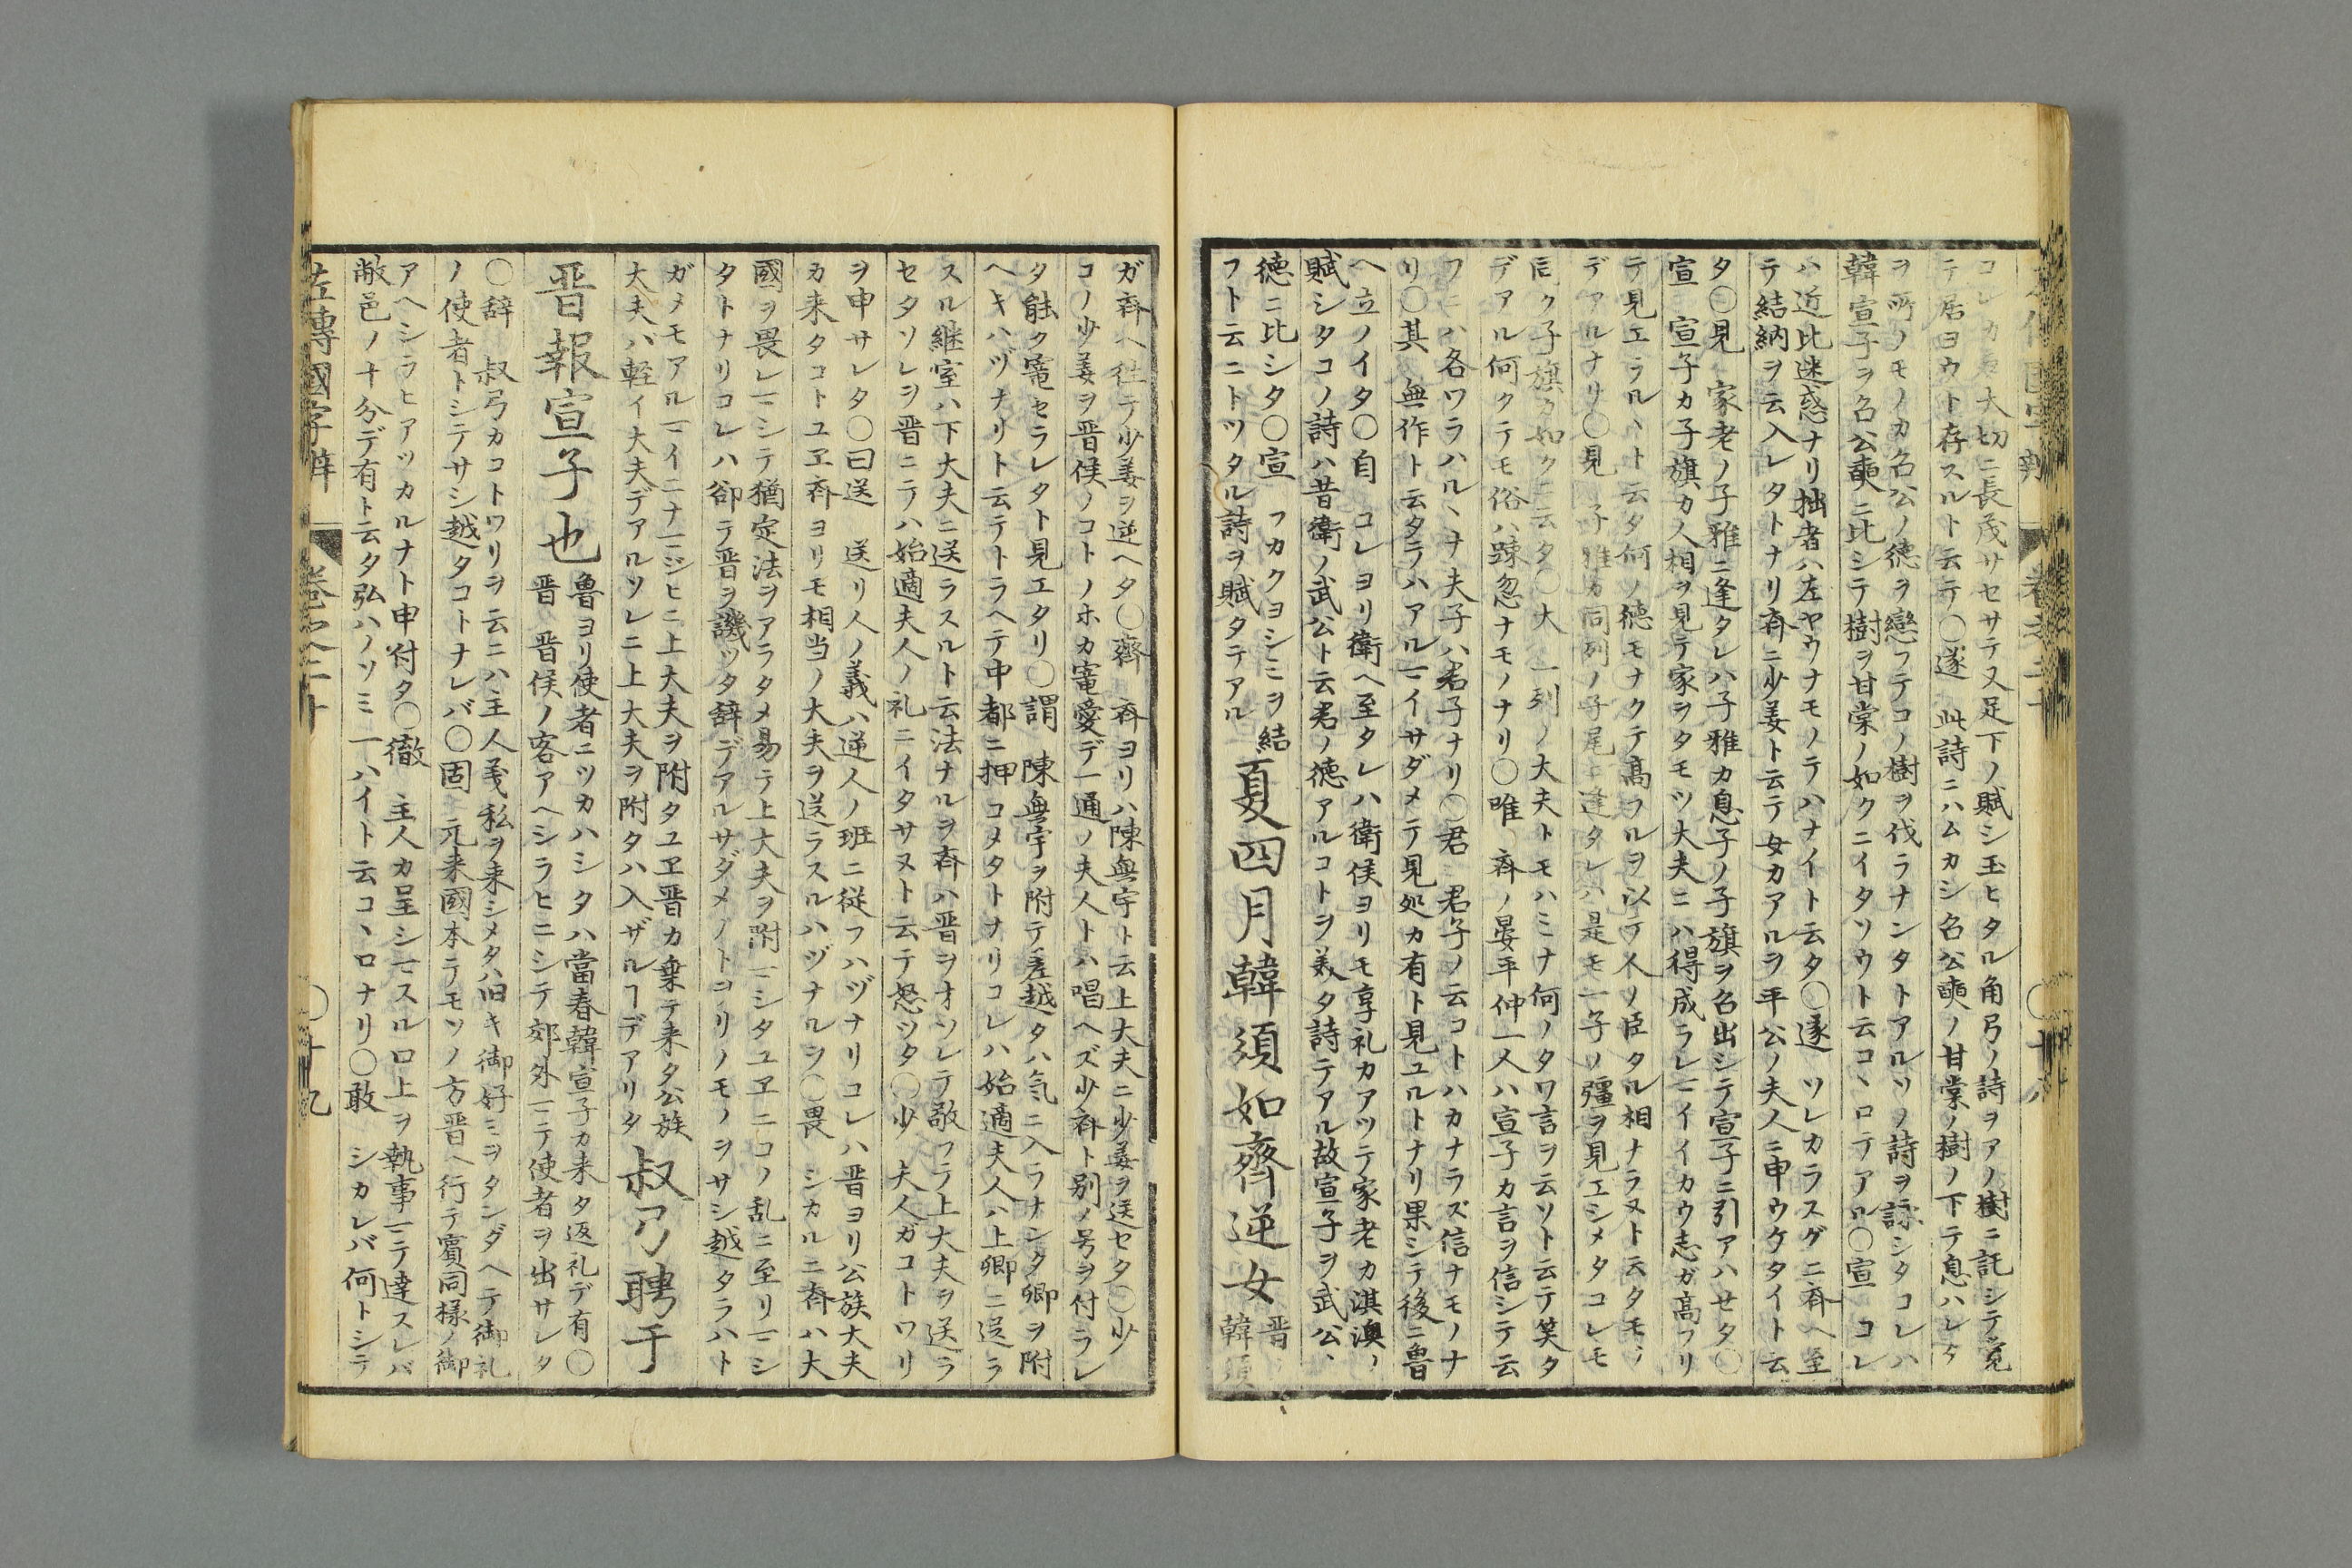 コレカ為大切ニ長茂サセサテ又足下ノ賦シ玉ヒタル角弓ノ詩ヲアノ樹ニ託シテ覓
テ居ヨウト存スルト云テ〇遂 此詩ニハムカシ召公奭ノ甘棠ノ樹ノ下テ息ハレタ
ヲ所ノモノカ召公ノ徳ヲ戀フテコノ樹ヲ伐ラナンタトアルソノ詩ヲ詠シタコレハ
韓宣子ヲ召公奭ニ比シテ樹ヲ甘棠ノ如クニイタソウト云コヽロテアル〇宣 コレ
ハ近比迷惑ナリ拙者ハ左ヤウナモノテハナイト云タ〇遂 ソレカラスグニ斉ヘ至
テ結納ヲ云入レタトナリ斉ニ少姜ト云テ女カアルヲ平公ノ夫人ニ申ウケタイト云
タ〇見 家老ノ子雅ニ逢タレハ子雅カ息子ノ子旗ヲ召出シテ宣子ニ引アハせタ〇
宣 宣子カ子旗カ人相ヲ見テ家ヲタモツ大夫ニハ得成ラレマイイカウ志ガ高フリ
テ見エラルヽト云タ何ノ徳モナクテ高フルヲ以テ人ノ臣タル相ナラヌト云タモノ
デアルナリ〇見 子雅カ同列ノ子尾ニ逢タレハ是モ一子ノ彊ヲ見エシメタコレモ
同ク子旗カ如クニ云タ〇大 一列ノ大夫トモハミナ何ノタワ言ヲ云ソト云テ笑タ
デアル何クテモ俗ハ踈忽ナモノナリ〇唯 斉ノ晏平仲一人ハ宣子カ言ヲ信シテ云
フニハ各ワラハルヽナ夫子ハ君子ナリ〇君 君子ノ云コトハカナラズ信ナモノナ
リ〇其 無作ト云タラハアルマイサダメテ見処カ有ト見ユルトナリ果シテ後ニ魯
ヘ立ノイタ〇自 コレヨリ衛ヘ至タレハ衛侯ヨリモ享礼カアツテ家老カ淇澳ノ
賦シタコノ詩ハ昔衛ノ武公ト云君ノ徳アルコトヲ美タ詩テアル故宣子ヲ武公ノ
徳ニ比シタ〇宣 フカクヨシミヲ結
フト云ニトツタル詩ヲ賦タテアル
夏四月韓須如齊逆女
晋ノ
韓須
ガ斉ヘ往テ少姜ヲ逆ヘタ〇齊 斉ヨリハ陳無宇ト云上大夫ニ少姜ヲ送セタ〇少
コノ少姜ヲ晋侯ノコトノホカ寵愛デ一通ノ夫人トハ唱ヘズ少斉ト別ノ号ヲ付ラレ
タ能ク寵セラレタト見エタリ〇謂 陳無宇ヲ附テ差越タハ気ニ入ラナンタ卿ヲ附
ヘキハヅナリト云テトラヘテ中都ニ押コメタトナリコレハ始適夫人ハ上卿ニ送ラ
スル継室ハ下大夫ニ送ラスルト云法ナルヲ斉ハ晋ヲオソレテ敬フテ上大夫ヲ送ラ
セタソレヲ晋ニテハ始適夫人ノ礼ニイタサヌト云テ怒ツタ〇少 夫人ガコトワリ
ヲ申サレタ〇曰送 送リ人ノ義ハ逆人ノ班ニ従フハヅナリコレハ晋ヨリ公族大夫
カ来タコトユヱ斉ヨリモ相当ノ大夫ヲ送ラスルハヅナルヲ〇畏 シカルニ斉ハ大
國ヲ畏レマシテ猶定法ヲアラタメ易テ上大夫ヲ附マシタユヱニコノ乱ニ至リマシ
タトナリコレハ卻テ晋ヲ譏ツタ辞デアルサダメノトヨリノモノヲサシ越タラハト
ガメモアルマイニナマジヒニ上大夫ヲ附タユヱ晋カ乗テ来タ公族
大夫ハ軽イ大夫デアルソレニ上大夫ヲ附タハ入ザルヿデアリタ
叔弓聘于
晋報宣子也
魯ヨリ使者ニツカハシタハ當春韓宣子カ来タ返礼デ有〇
晋 晋侯ノ客アヘシラヒニシテ郊外マテ使者ヲ出サレタ
〇辞 叔弓カコトワリヲ云ニハ主人義私ヲ来シメタハ旧キ御好ミヲタンダヘテ御礼
ノ使者トシテサシ越タコトナレバ〇固 元来國本テモソノ方晋ヘ行テ賓同様ノ御
アヘシラヒアツカルナト申付タ〇徹 主人カ呈シマスル口上ヲ執事マテ達スレバ
敝邑ノ十分デ有ト云タ弘ハノソミ一ハイト云コヽロナリ〇敢 シカレバ何トシテ
左傳國字辯 巻之二十 〇十九